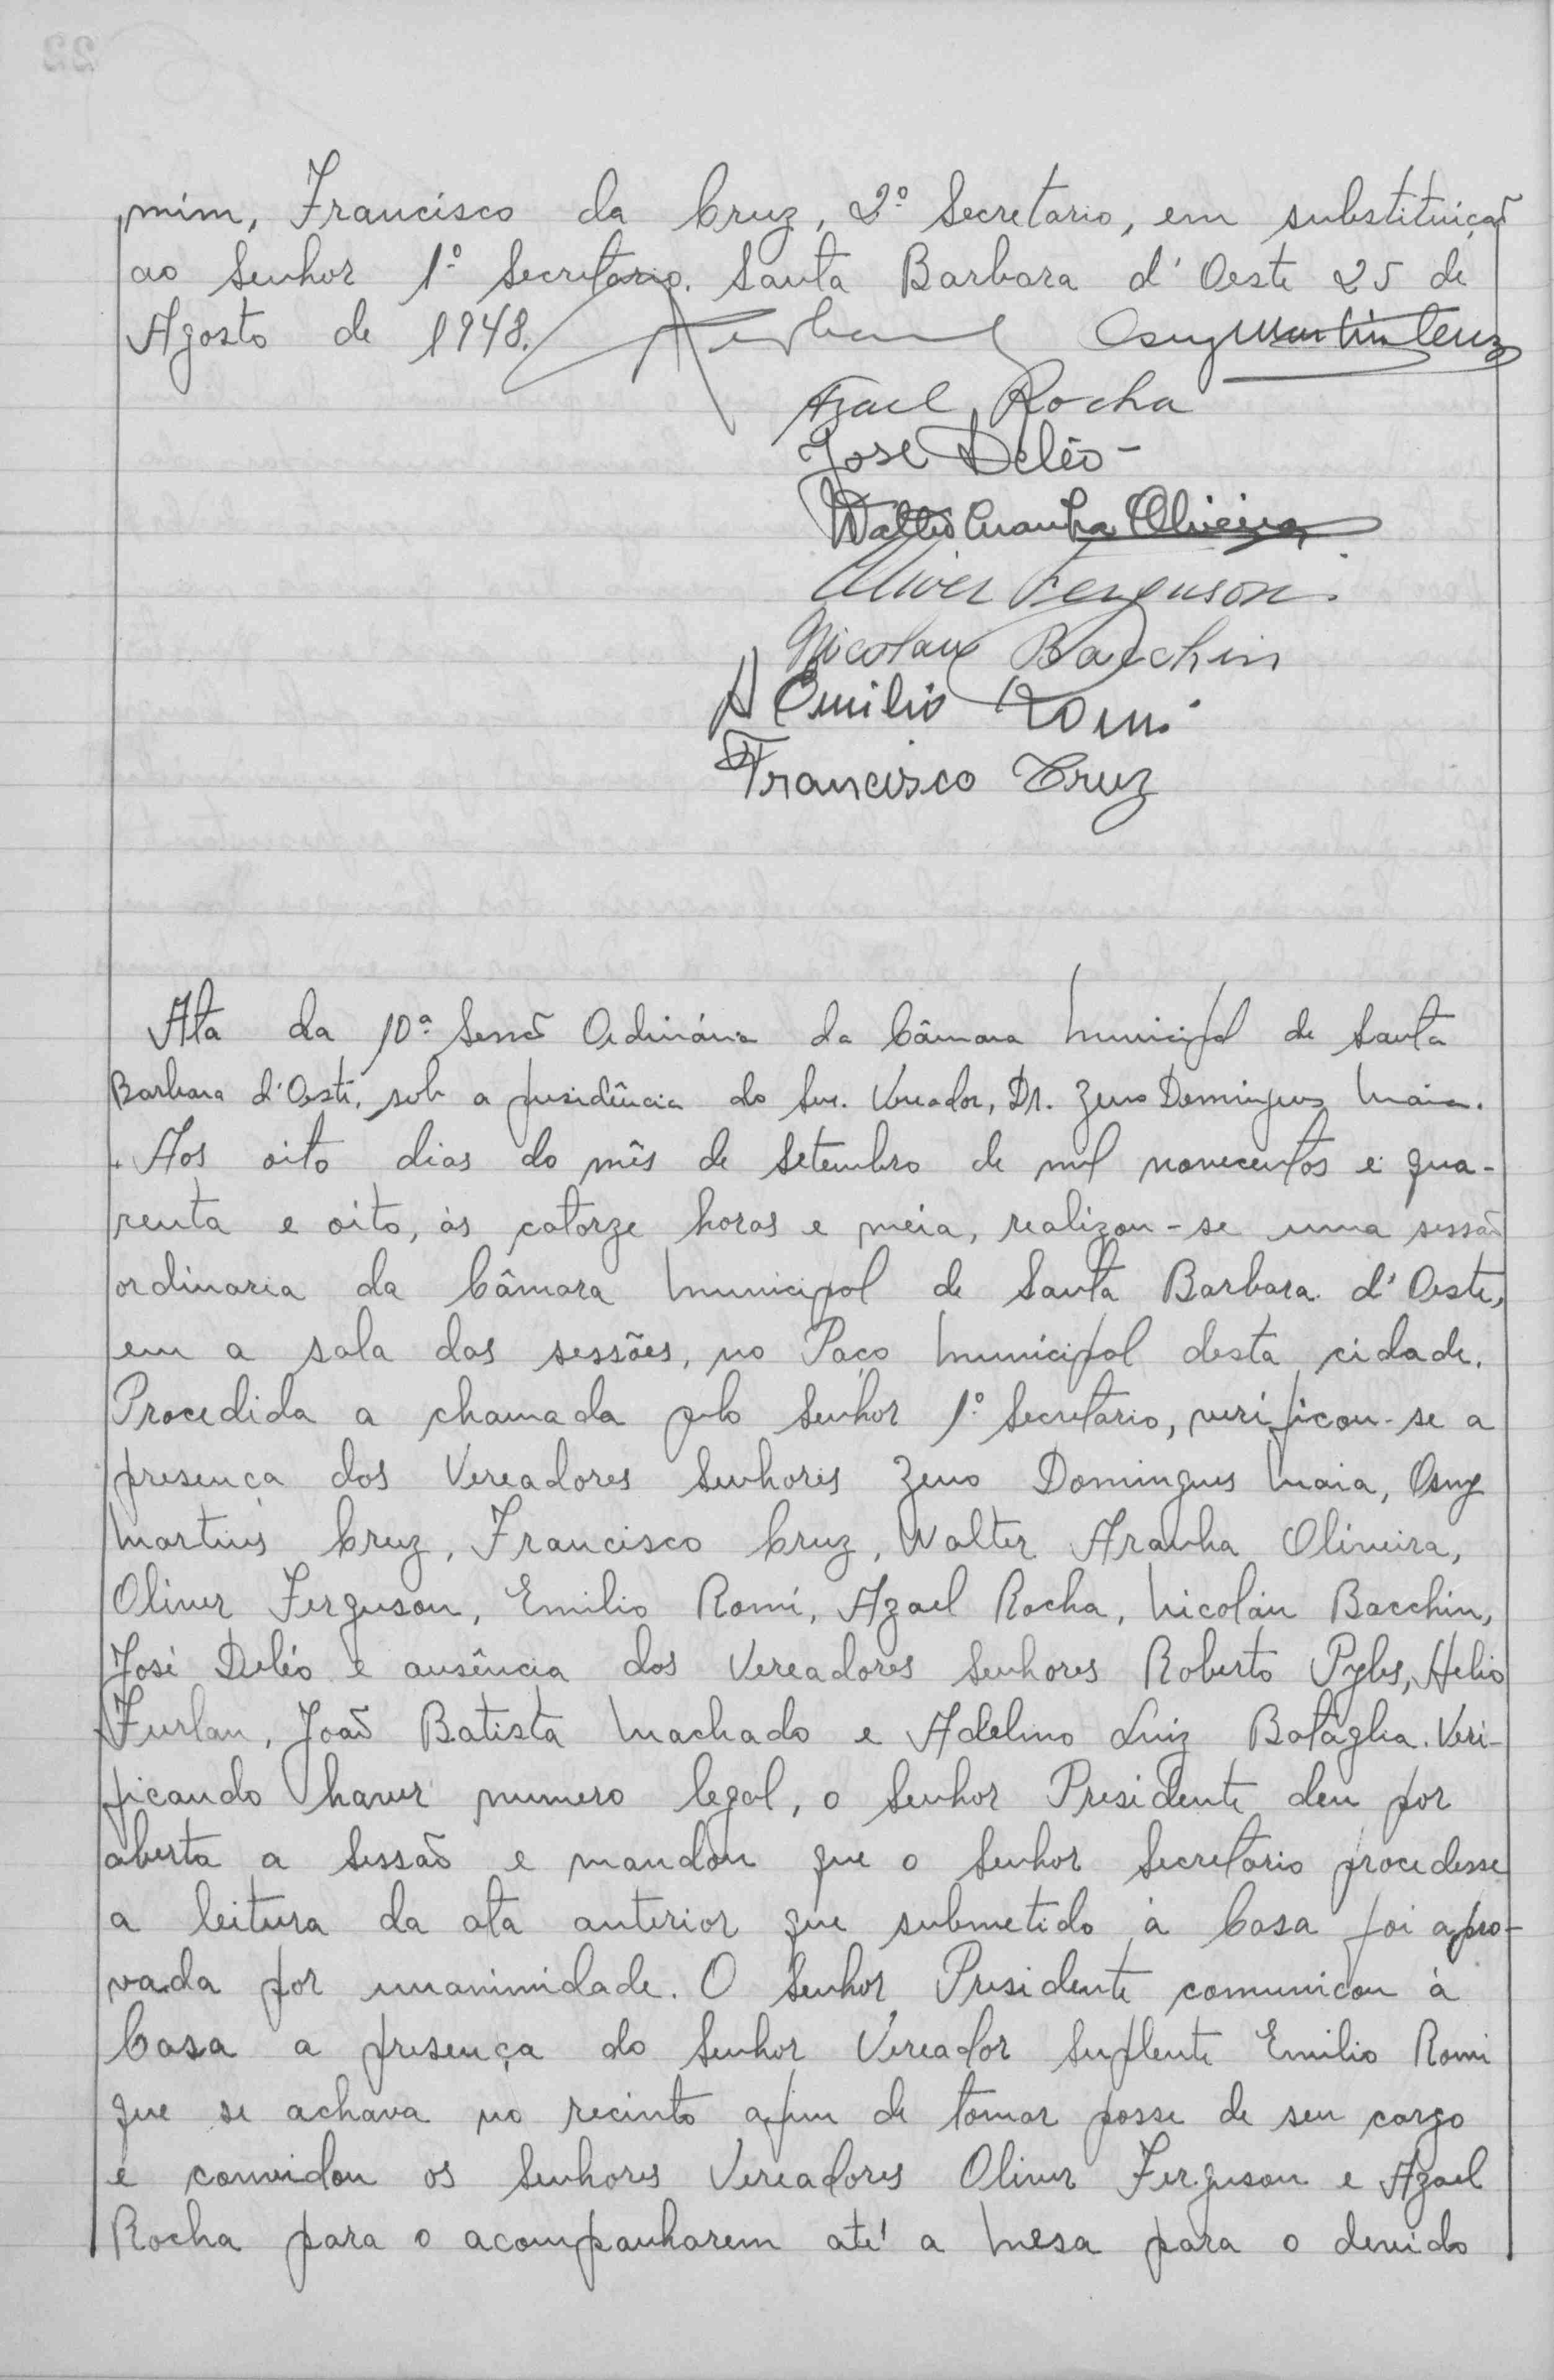 mim, Francisco da Cruz, 2º Secretario, em substituição
ao Senhor 1º Secretario. Santa Barbara d'Oeste 25 de
Agosto de 1948. Osny Martins Cruz
Azael Rocha
José Deléo -
Walter Aranha Oliveira
Oliver Ferguson.
Nicolau Bacchin
A Emilio Romi
Francisco Cruz
Ata da 10ª Sessão Ordinária da Câmara Municipal de Santa
Barbara d'Oeste, sob a presidência do Snr. Vereador, Dr. Zeno Domingues Maia.
Aos oito dias do mês de Setembro de mil novecentos e qua-
renta e oito, às catorze horas e meia, realizou-se uma sessão
ordinaria da Câmara Municipal de Santa Barbara d'Oeste,
em a sala das sessões, no Paço Municipal desta cidade.
Procedida a chamada pelo Senhor 1º Secretario, verificou-se a
presença dos Vereadores Senhores Zeno Domingues Maia, Osny
Martins Cruz, Francisco Cruz, Walter Aranha Oliveira,
Oliver Ferguson, Emilio Romi, Azael Rocha, Nicoláu Bacchin,
José Deléo e ausência dos Vereadores Senhores Roberto Pyles, Helio
Furlan, João Batista Machado e Adelmo Luiz Bataglia. Veri-
ficando haver numero legal, o Senhor Presidente deu por
aberta a Sessão e mandou que o Senhor Secretario procedesse
a leitura da ata anterior que submetido à Casa foi apro-
vada por unanimidade. O Senhor Presidente comunicou à
Casa a presença do Senhor Vereador Suplente Emilio Romi
que se achava no recinto afim de tomar posse de seu cargo
e convidou os Senhores Vereadores Oliver Ferguson e Azael
Rocha para o acompanharem até a Mesa para o devido